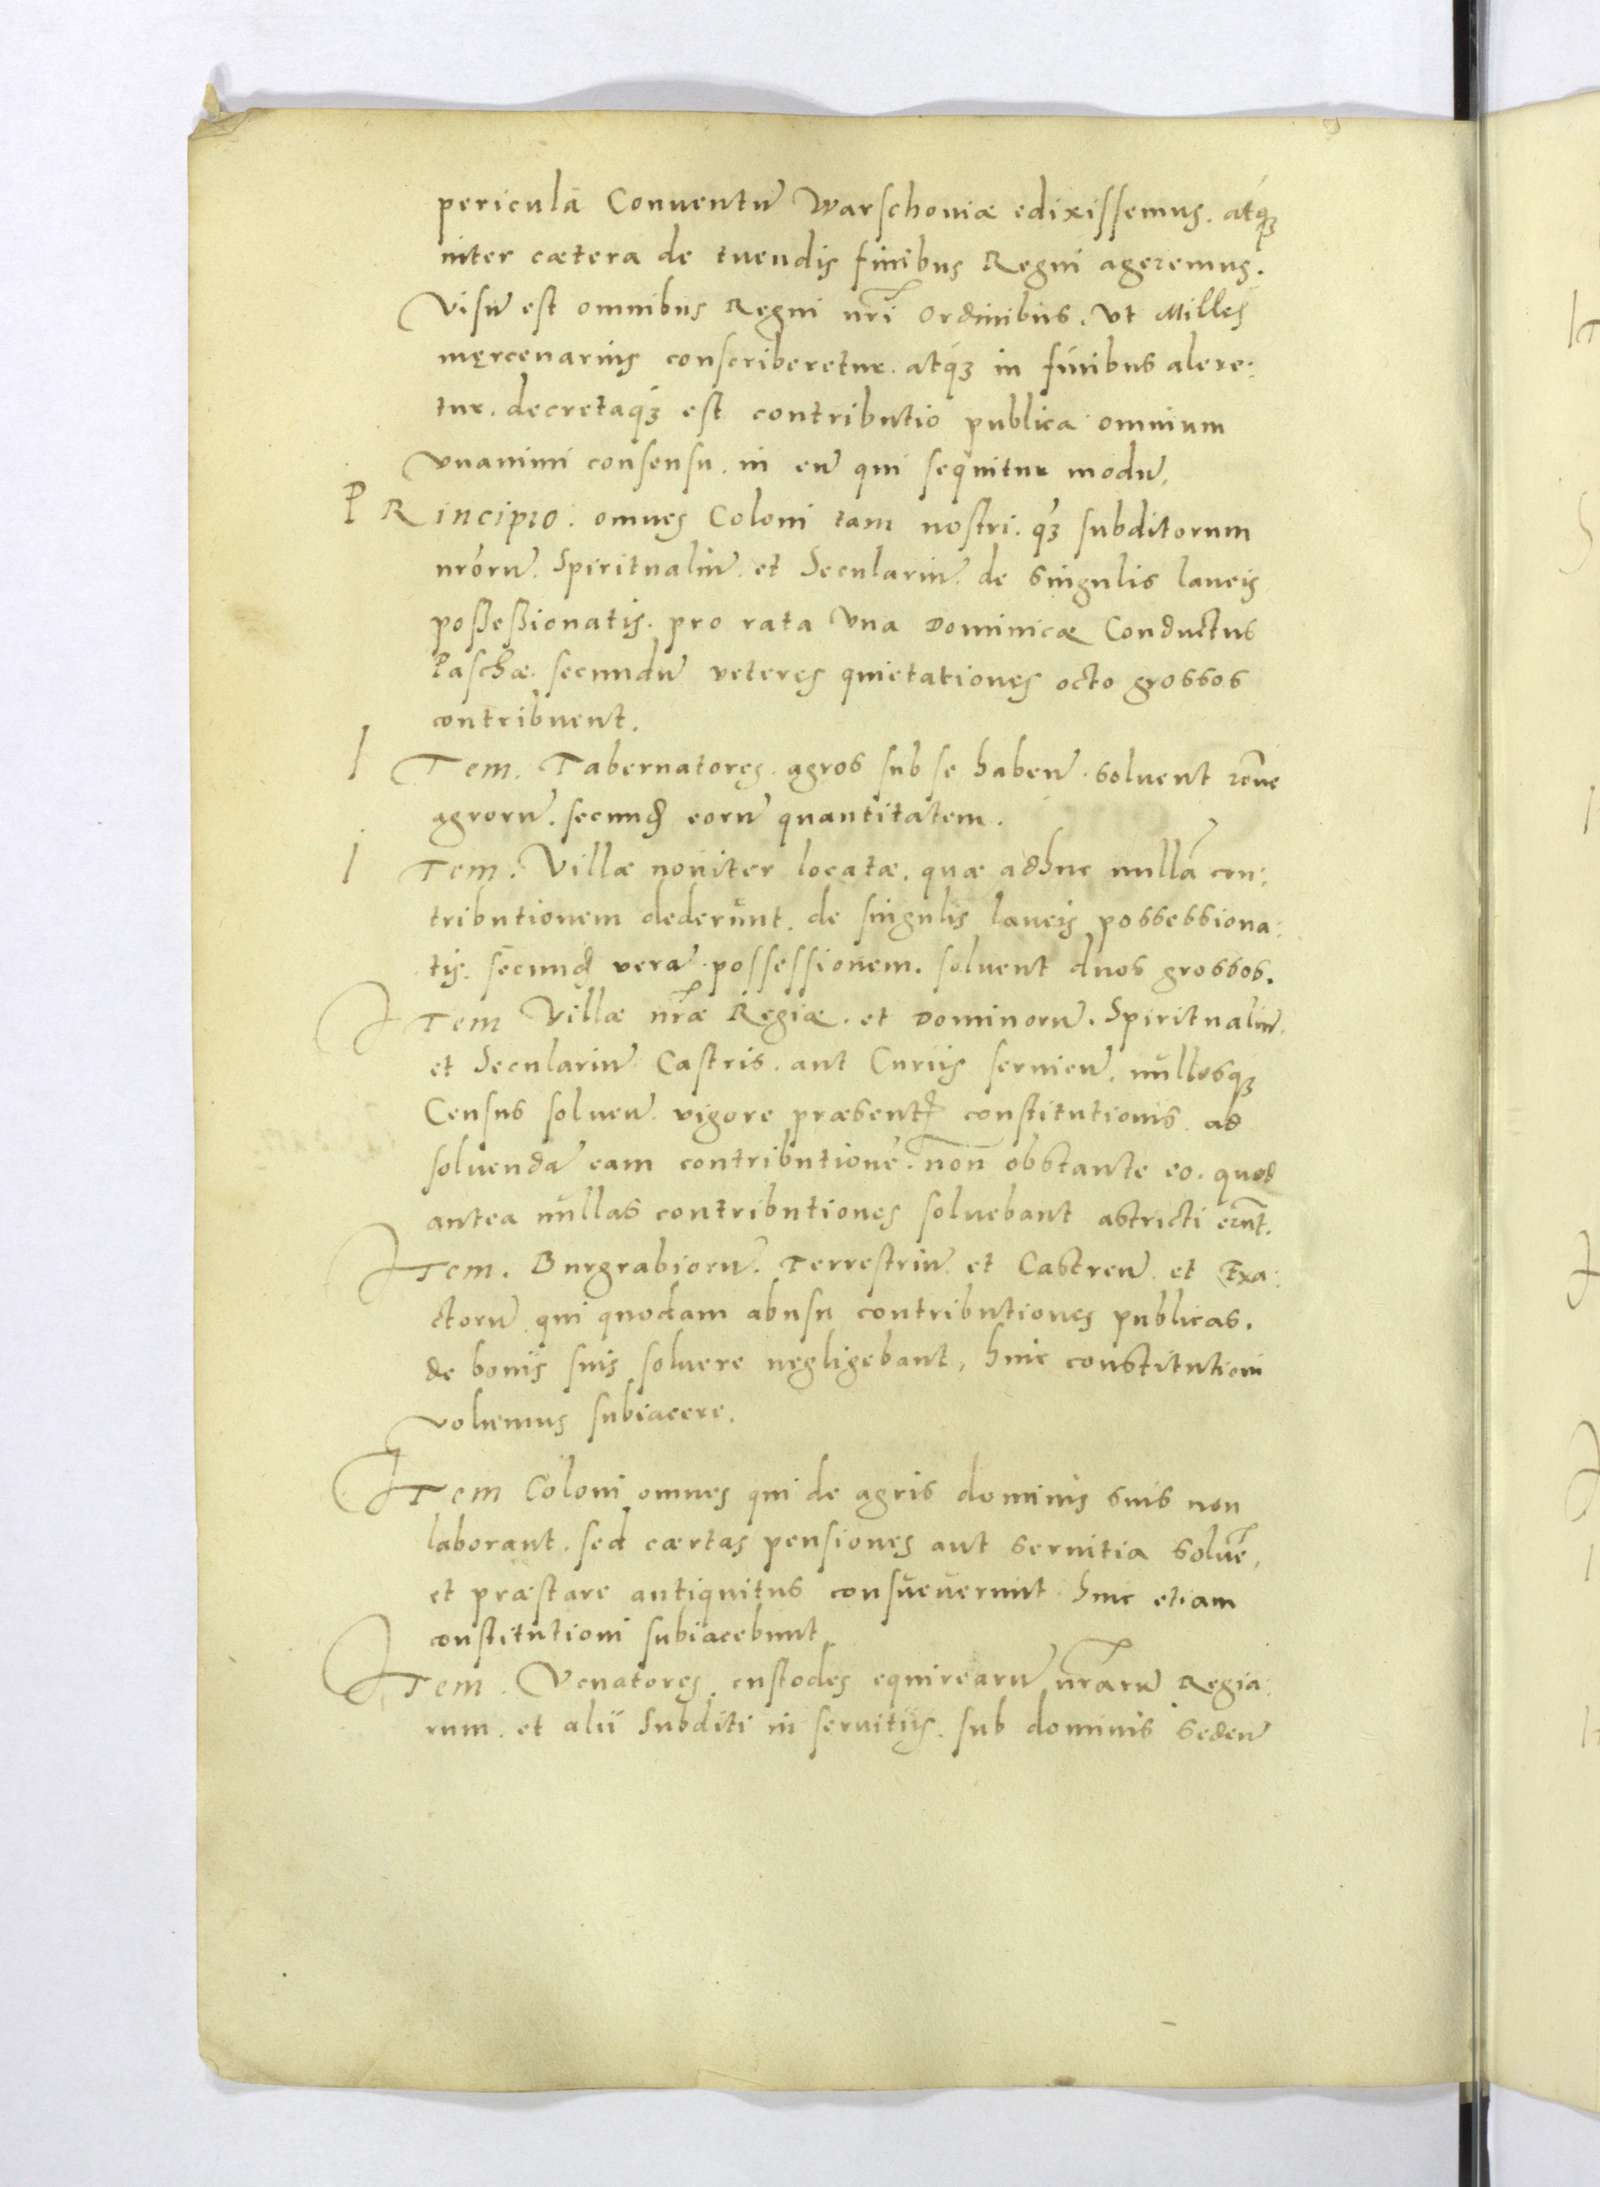 periculā Conuentũ Warschouiæ edixissemus. atq́ꝫ
inter cætera de tuendis finibus Regni ageremus.
Visũ est omnibus Regni nr̃i Ordinibus. Vt Milles
męrcenarius conscriberetur. atq́ꝫ in finibus alere:
tur. decretaq́ꝫ est contributio publica omnium
vnanimi consensu. in eũ qui sequitur modũ.
PRincipio. omnes Coloni tam nostri. q́ꝫ subditorum
nr̃orũ. Spiritualiũ. et Seculariũ. de singulis laneis
poßeßionatis. pro rata Vna Dominicæ Conductus
Paschæ. secundũ veteres quietationes octo grossos
contribuent.
ITem. Tabernatores. agros sub se habeñ. soluent
agrorũ. secund̃ eorũ quantitatem.
ITem. Villæ nouiter locatæ. quæ adhuc nullā con:
tributionem dederunt. de singulis laneis possessiona:
tis. secund̃ verã possessionem. soluent duos grossos.
ITem Villæ nr̃æ Regiæ. et Dominorũ. Spiritualiũ.
et Seculariũ Castris. aut Curiis seruieñ. nullosqꝫ
Census solueñ. vigore præsent̃ constitutionis. ad
soluendã eam contributionẽ. non obstante eo. quod
antea nullas contributiones soluebant astricti erũt.
ITem. Burgrabiorũ. Terrestriũ et Castreñ. et Exa:
ctorũ qui quodam abusu contributiones publicas.
de bonis suis soluere negligebant, huic constitutioni
volumus subiacere.
ITem Coloni omnes qui de agris dominis suis non
laborant. sed cærtas pensiones aut seruitia soluẽ,
et præstare antiquitus consueuerunt huic etiam
constitutioni subiacebunt
ITem. Venatores. custodes equirearũ nr̃arũ Regia:
rum. et alii Subditi in seruitiis. sub dominis sedeñ